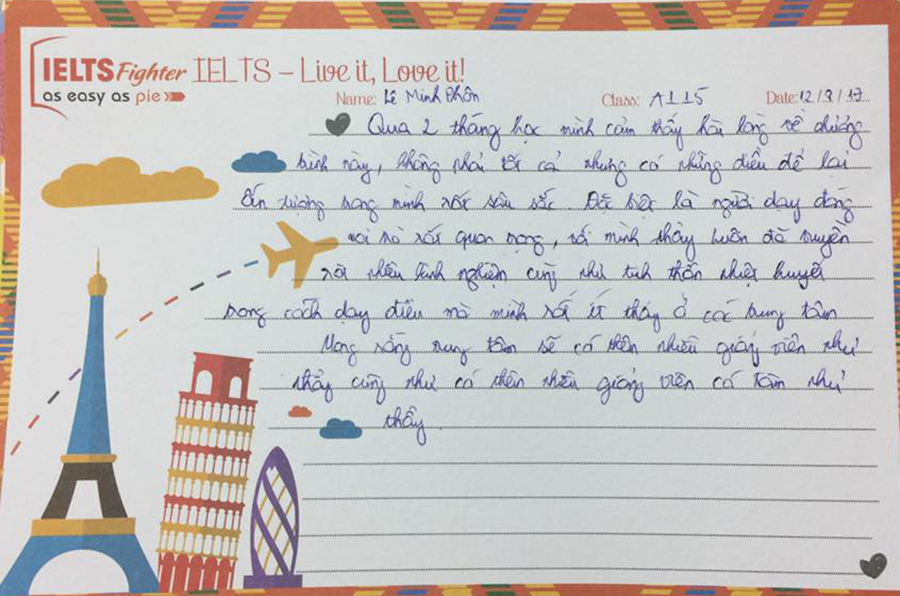 IELTS Fighter IELTS – Live it, Love it!
as easy as pie
Name: Lê Minh Class: A115 Date: 12/9/17
Qua 2 tháng học mình cảm thấy hài lòng về chương
trình này, không phải tất cả nhưng có những điều để lại
ấn tượng trong mình rất sâu sắc. Đặc biệt là người dạy đóng
vai trò rất quan trọng, với mình thầy luôn đã truyền
rất nhiều kinh nghiệm cũng như tinh thần nhiệt huyết
trong cách dạy điều mà mình rất ít thấy ở các trung tâm
Mong rằng trung tâm sẽ có thêm nhiều giảng viên như
thầy cũng như có thêm nhiều giảng viên có tâm như
thầy.